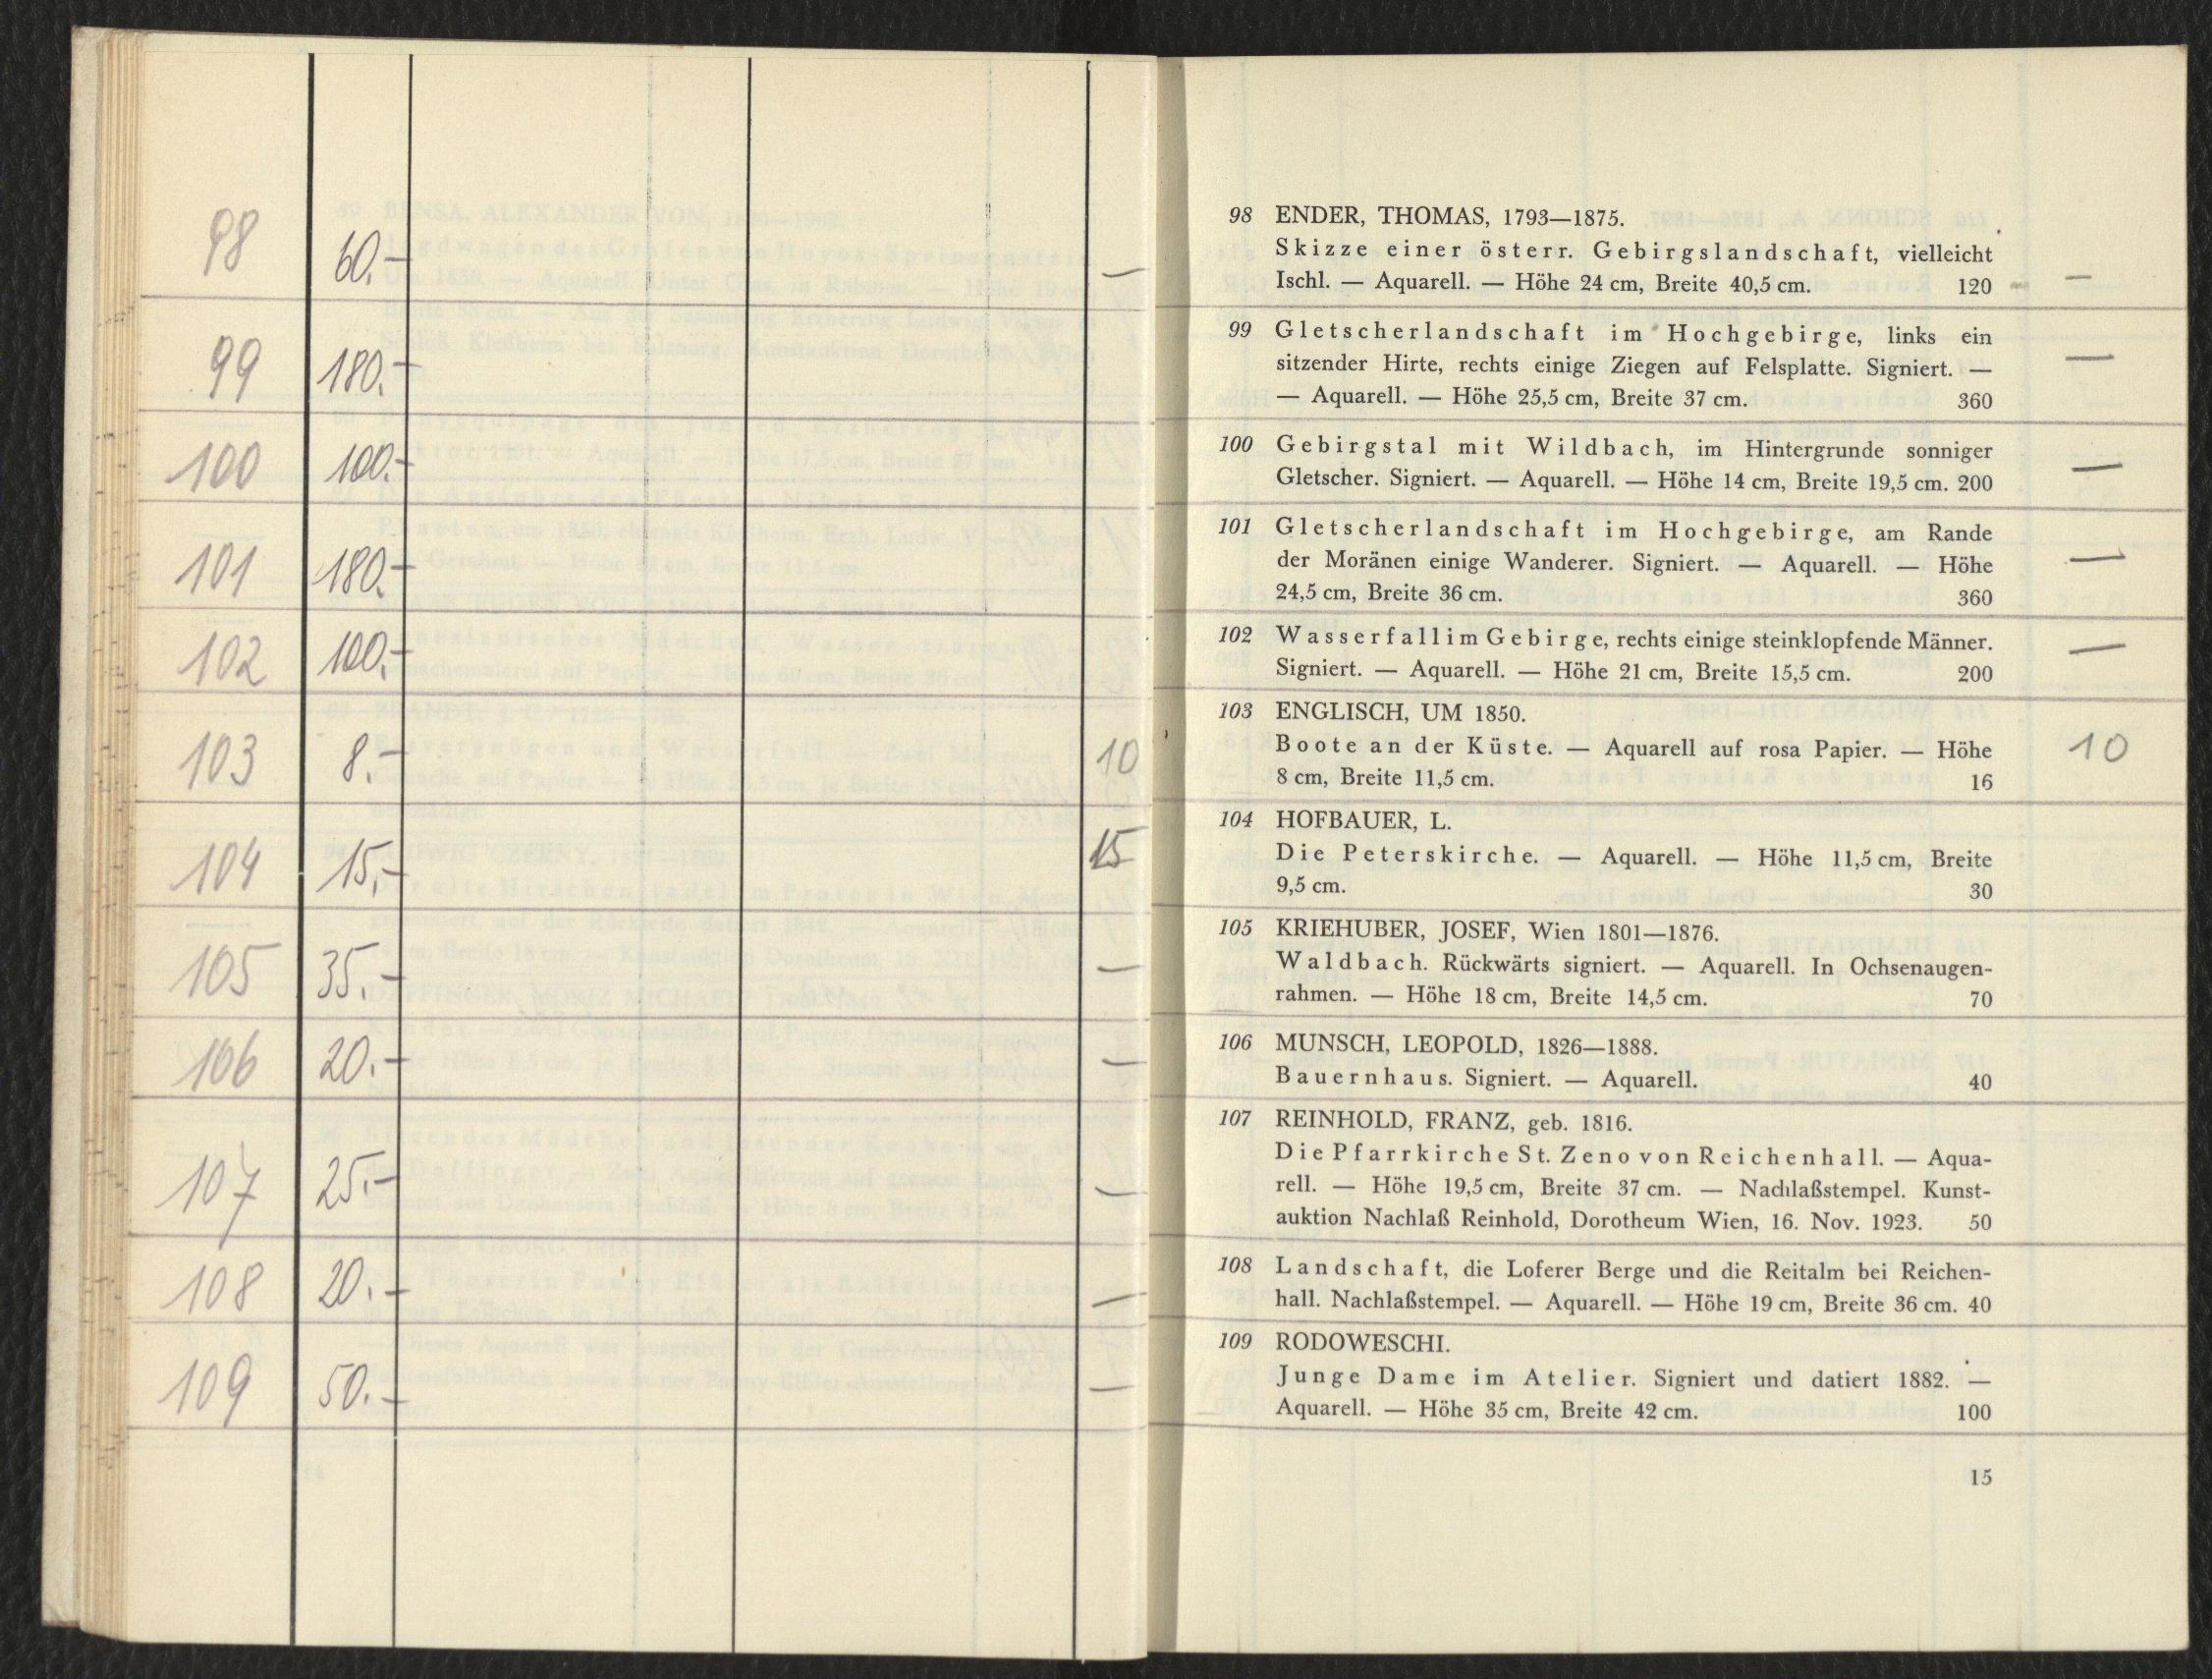 98 60.- —
99 180.-
100 100.-
101 180.-
102 100.-
103 8.- 10
104 15,- 15
105 35.- —
106 20.- —
107 25.- —
108 20.- —
109 50.- —
98 ENDER, THOMAS, 1793—1875.
Skizze einer österr. Gebirgslandschaft, vielleicht
Ischl. — Aquarell. — Höhe 24 cm, Breite 40,5 cm. 120 —
99 Gletscherlandschaft im Hochgebirge, links ein
sitzender Hirte, rechts einige Ziegen auf Felsplatte. Signiert. — —
— Aquarell. — Höhe 25,5 cm, Breite 37 cm. 360
100 Gebirgstal mit Wildbach, im Hintergrunde sonniger —
Gletscher. Signiert. — Aquarell. — Höhe 14 cm, Breite 19,5 cm. 200
101 Gletscherlandschaft im Hochgebirge, am Rande
der Moränen einige Wanderer. Signiert. — Aquarell. — Höhe —
24,5 cm, Breite 36 cm. 360
102 Wasserfall im Gebirge, rechts einige steinklopfende Männer. —
Signiert. — Aquarell. — Höhe 21 cm, Breite 15,5 cm. 200
103 ENGLISCH, UM 1850.
Boote an der Küste. — Aquarell auf rosa Papier. — Höhe 10
8 cm, Breite 11,5 cm. 16
104 HOFBAUER, L.
Die Peterskirche. — Aquarell. — Höhe 11,5 cm, Breite
9,5 cm. 30
105 KRIEHUBER, JOSEF, Wien 1801—1876.
Waldbach. Rückwärts signiert. — Aquarell. In Ochsenaugen-
rahmen. — Höhe 18 cm, Breite 14,5 cm. 70
106 MUNSCH, LEOPOLD, 1826—1888.
Bauernhaus. Signiert. — Aquarell. 40
107 REINHOLD, FRANZ, geb. 1816.
Die Pfarrkirche St. Zeno von Reichenhall. — Aqua-
rell. — Höhe 19,5 cm, Breite 37 cm. — Nachlaßstempel. Kunst-
auktion Nachlaß Reinhold, Dorotheum Wien, 16. Nov. 1923. 50
108 Landschaft, die Loferer Berge und die Reitalm bei Reichen-
hall. Nachlaßstempel. — Aquarell. — Höhe 19 cm, Breite 36 cm. 40
109 RODOWESCHI.
Junge Dame im Atelier. Signiert und datiert 1882. —
Aquarell. — Höhe 35 cm, Breite 42 cm. 100
15